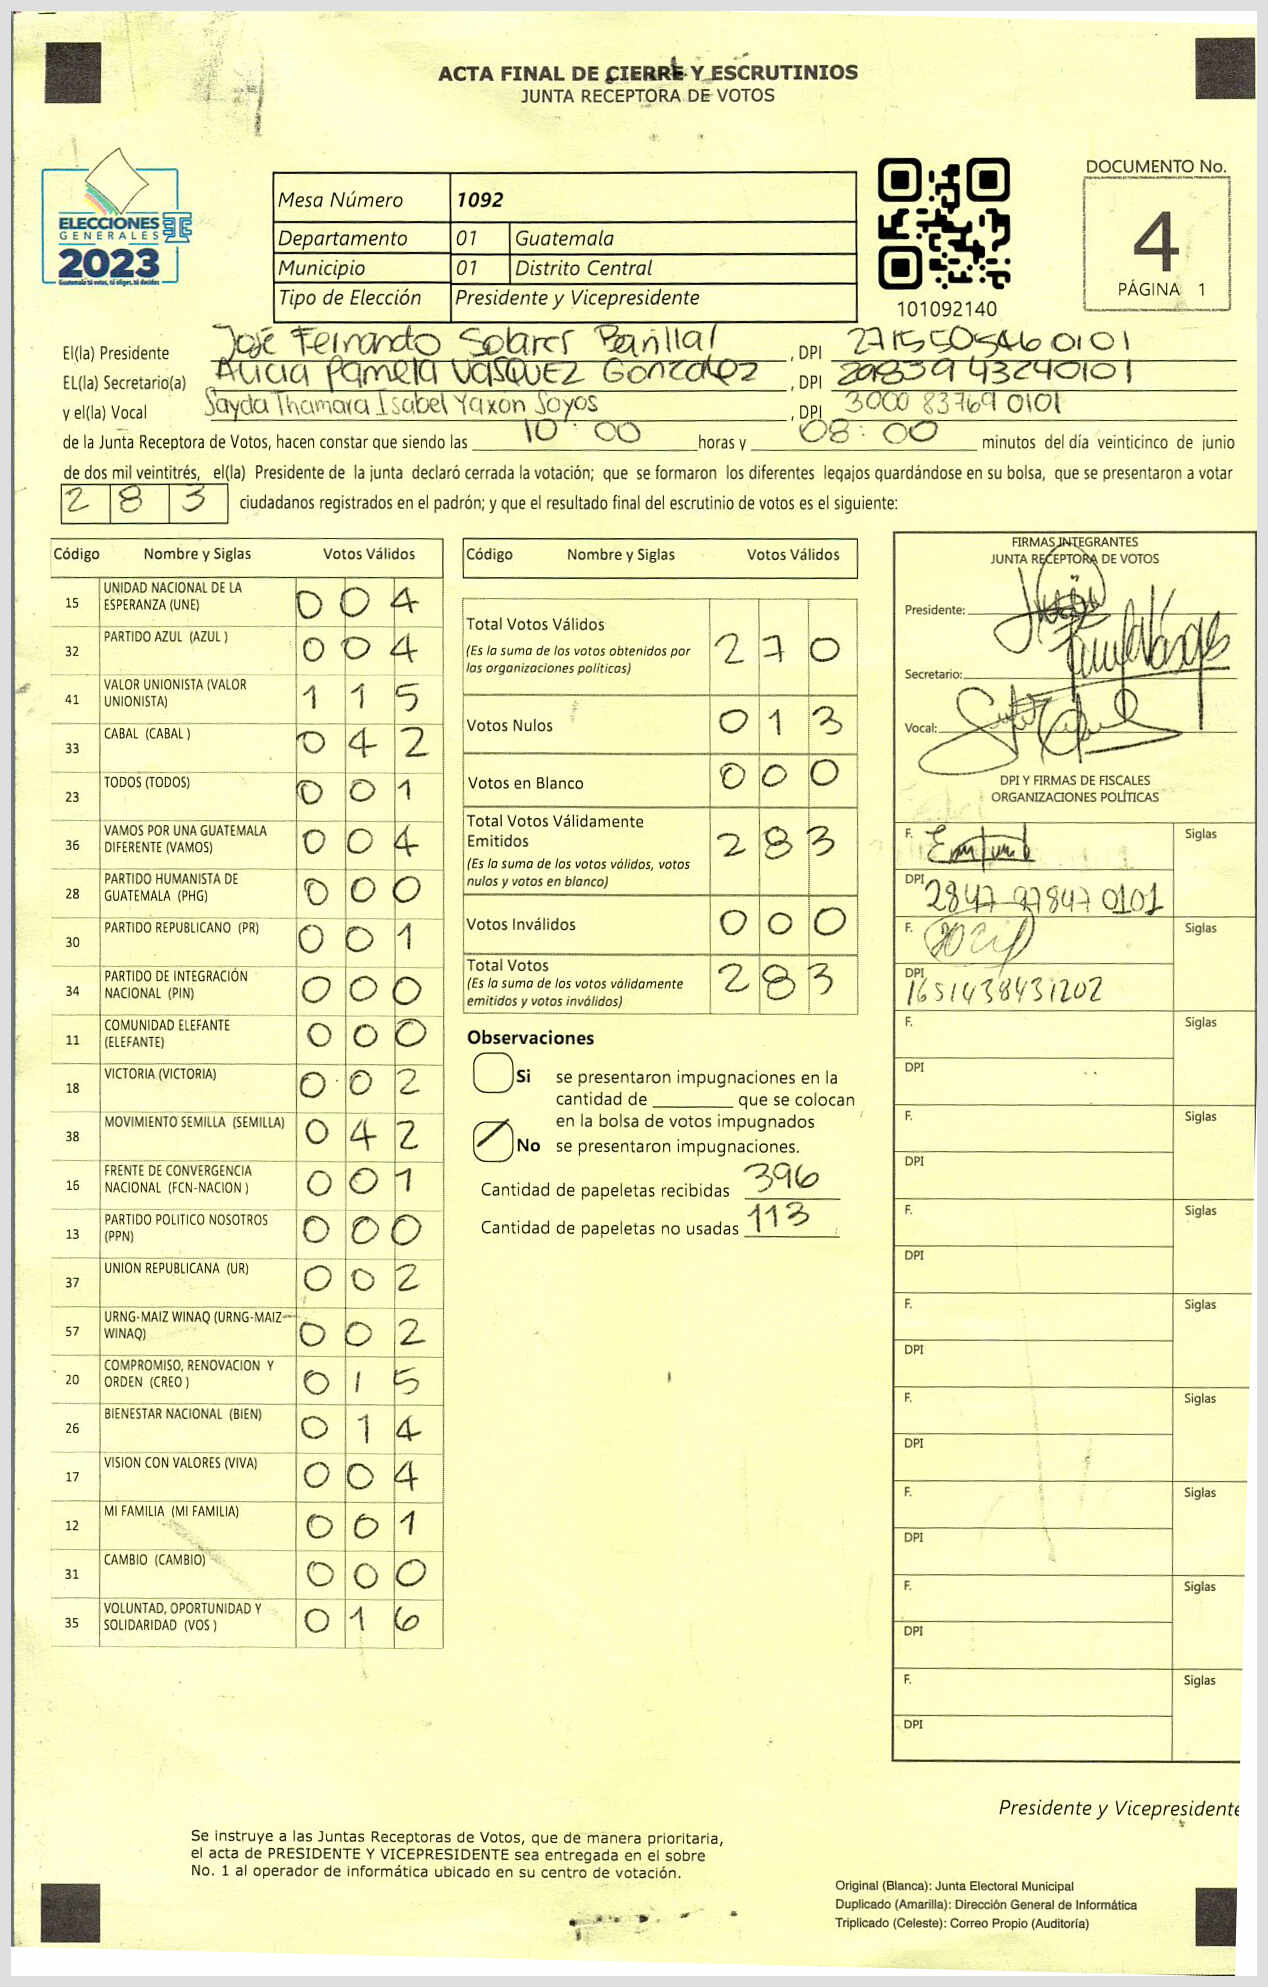 ACTA FINAL DE CIERRE Y ESCRUTINIOS
JUNTA RECEPTORA DE VOTOS
ELECCIONES
GENERALES
2023
Guatemala tú votas, tú eliges, tú decides
Mesa Número 1092
Departamento 01 Guatemala
Municipio 01 Distrito Central
Tipo de Elección Presidente y Vicepresidente
101092140
DOCUMENTO No.
4
PÁGINA 1
El(la) Presidente José Fernando Solares , DPI 2715505460101
EL(la) Secretario(a) Alicia Pamela Vasquez Gonzalez , DPI
y el(la) Vocal Sayda Thamara Isabel Yaxon Soyos , DPI 3000 83769 0101
de la Junta Receptora de Votos, hacen constar que siendo las 10:00 horas y 08:00 minutos del día veinticinco de junio
de dos mil veintitrés, el(la) Presidente de la junta declaró cerrada la votación; que se formaron los diferentes legajos guardándose en su bolsa, que se presentaron a votar
283 ciudadanos registrados en el padrón; y que el resultado final del escrutinio de votos es el siguiente:
Código Nombre y Siglas Votos Válidos
15 UNIDAD NACIONAL DE LA
ESPERANZA (UNE) 004
32 PARTIDO AZUL (AZUL ) 004
41 VALOR UNIONISTA (VALOR
UNIONISTA) 115
33 CABAL (CABAL ) 042
23 TODOS (TODOS) 001
36 VAMOS POR UNA GUATEMALA
DIFERENTE (VAMOS) 004
28 PARTIDO HUMANISTA DE
GUATEMALA (PHG) 000
30 PARTIDO REPUBLICANO (PR) 001
34 PARTIDO DE INTEGRACIÓN
NACIONAL (PIN) 000
11 COMUNIDAD ELEFANTE
(ELEFANTE) 000
18 VICTORIA (VICTORIA) 002
38 MOVIMIENTO SEMILLA (SEMILLA) 042
16 FRENTE DE CONVERGENCIA
NACIONAL (FCN-NACION ) 001
13 PARTIDO POLITICO NOSOTROS
(PPN) 000
37 UNION REPUBLICANA (UR) 002
57 URNG-MAIZ WINAQ (URNG-MAIZ
WINAQ) 002
20 COMPROMISO, RENOVACION Y
ORDEN (CREO ) 015
26 BIENESTAR NACIONAL (BIEN) 014
17 VISION CON VALORES (VIVA) 004
12 MI FAMILIA (MI FAMILIA) 001
31 CAMBIO (CAMBIO) 000
35 VOLUNTAD, OPORTUNIDAD Y
SOLIDARIDAD (VOS ) 016
Código Nombre y Siglas Votos Válidos
Total Votos Válidos 270
(Es la suma de los votos obtenidos por
las organizaciones políticas)
Votos Nulos 013
Votos en Blanco 000
Total Votos Válidamente
Emitidos 283
(Es la suma de los votos válidos, votos
nulos y votos en blanco)
Votos Inválidos 000
Total Votos 283
(Es la suma de los votos válidamente
emitidos y votos inválidos)
Observaciones
Si se presentaron impugnaciones en la
cantidad de ________ que se colocan
en la bolsa de votos impugnados
No se presentaron impugnaciones.
Cantidad de papeletas recibidas 396
Cantidad de papeletas no usadas 113
FIRMAS INTEGRANTES
JUNTA RECEPTORA DE VOTOS
Presidente:
Secretario:
Vocal:
DPI Y FIRMAS DE FISCALES
ORGANIZACIONES POLÍTICAS
F. Siglas
DPI 2847 97847 0101
F. Siglas
DPI 1651438431202
F. Siglas
DPI
F. Siglas
DPI
F. Siglas
DPI
F. Siglas
DPI
F. Siglas
DPI
F. Siglas
DPI
F. Siglas
DPI
F. Siglas
DPI
Presidente y Vicepresidente
Se instruye a las Juntas Receptoras de Votos, que de manera prioritaria,
el acta de PRESIDENTE Y VICEPRESIDENTE sea entregada en el sobre
No. 1 al operador de informática ubicado en su centro de votación.
Original (Blanca): Junta Electoral Municipal
Duplicado (Amarilla): Dirección General de Informática
Triplicado (Celeste): Correo Propio (Auditoría)